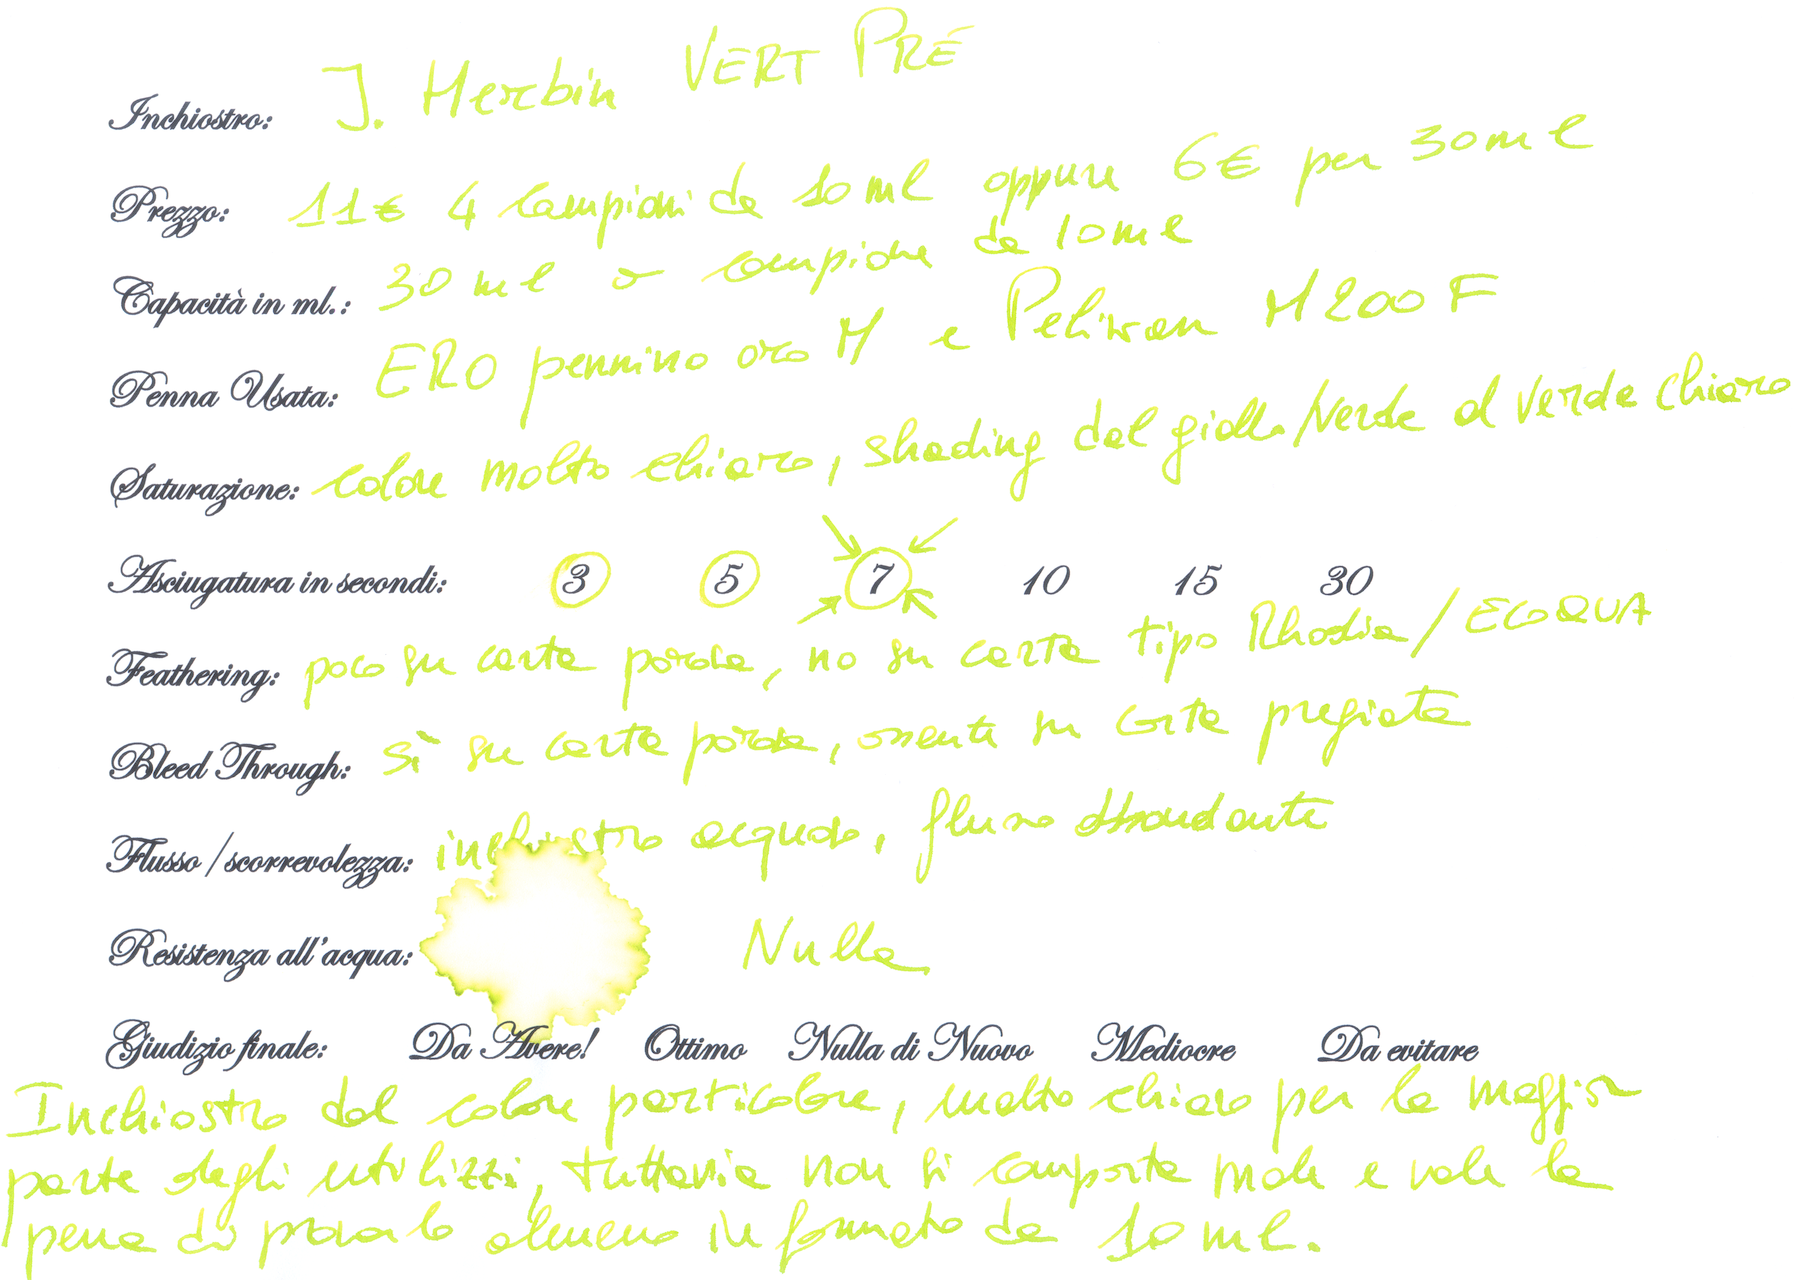 Inchiostro: J. Herbin VERT PRÉ
Prezzo: 11€ 4 campioni da 10ml oppure 6€ per 30ml
Capacità in ml.: 30ml o campione da 10ml
Penna Usata: ERO pennino oro M e Pelikan M200 F
Saturazione: colore molto chiaro, shading dal giallo/verde al verde chiaro
Asciugatura in secondi: 3 5 7 10 15 30
Feathering: poco su carta porosa, no su carta tipo Rhodia/ECOQUA
Bleed Through: sì su carta porosa, assente su carta pregiata
Flusso/scorrevolezza: inchiostro acquoso, flusso abbondante
Resistenza all'acqua: Nulla
Giudizio finale: Da Avere! Ottimo Nulla di Nuovo Mediocre Da evitare
Inchiostro dal colore particolare, molto chiaro per la maggior
parte degli utilizzi, tuttavia non si comporta male e vale la
pena di provarlo almeno in formato da 10ml.